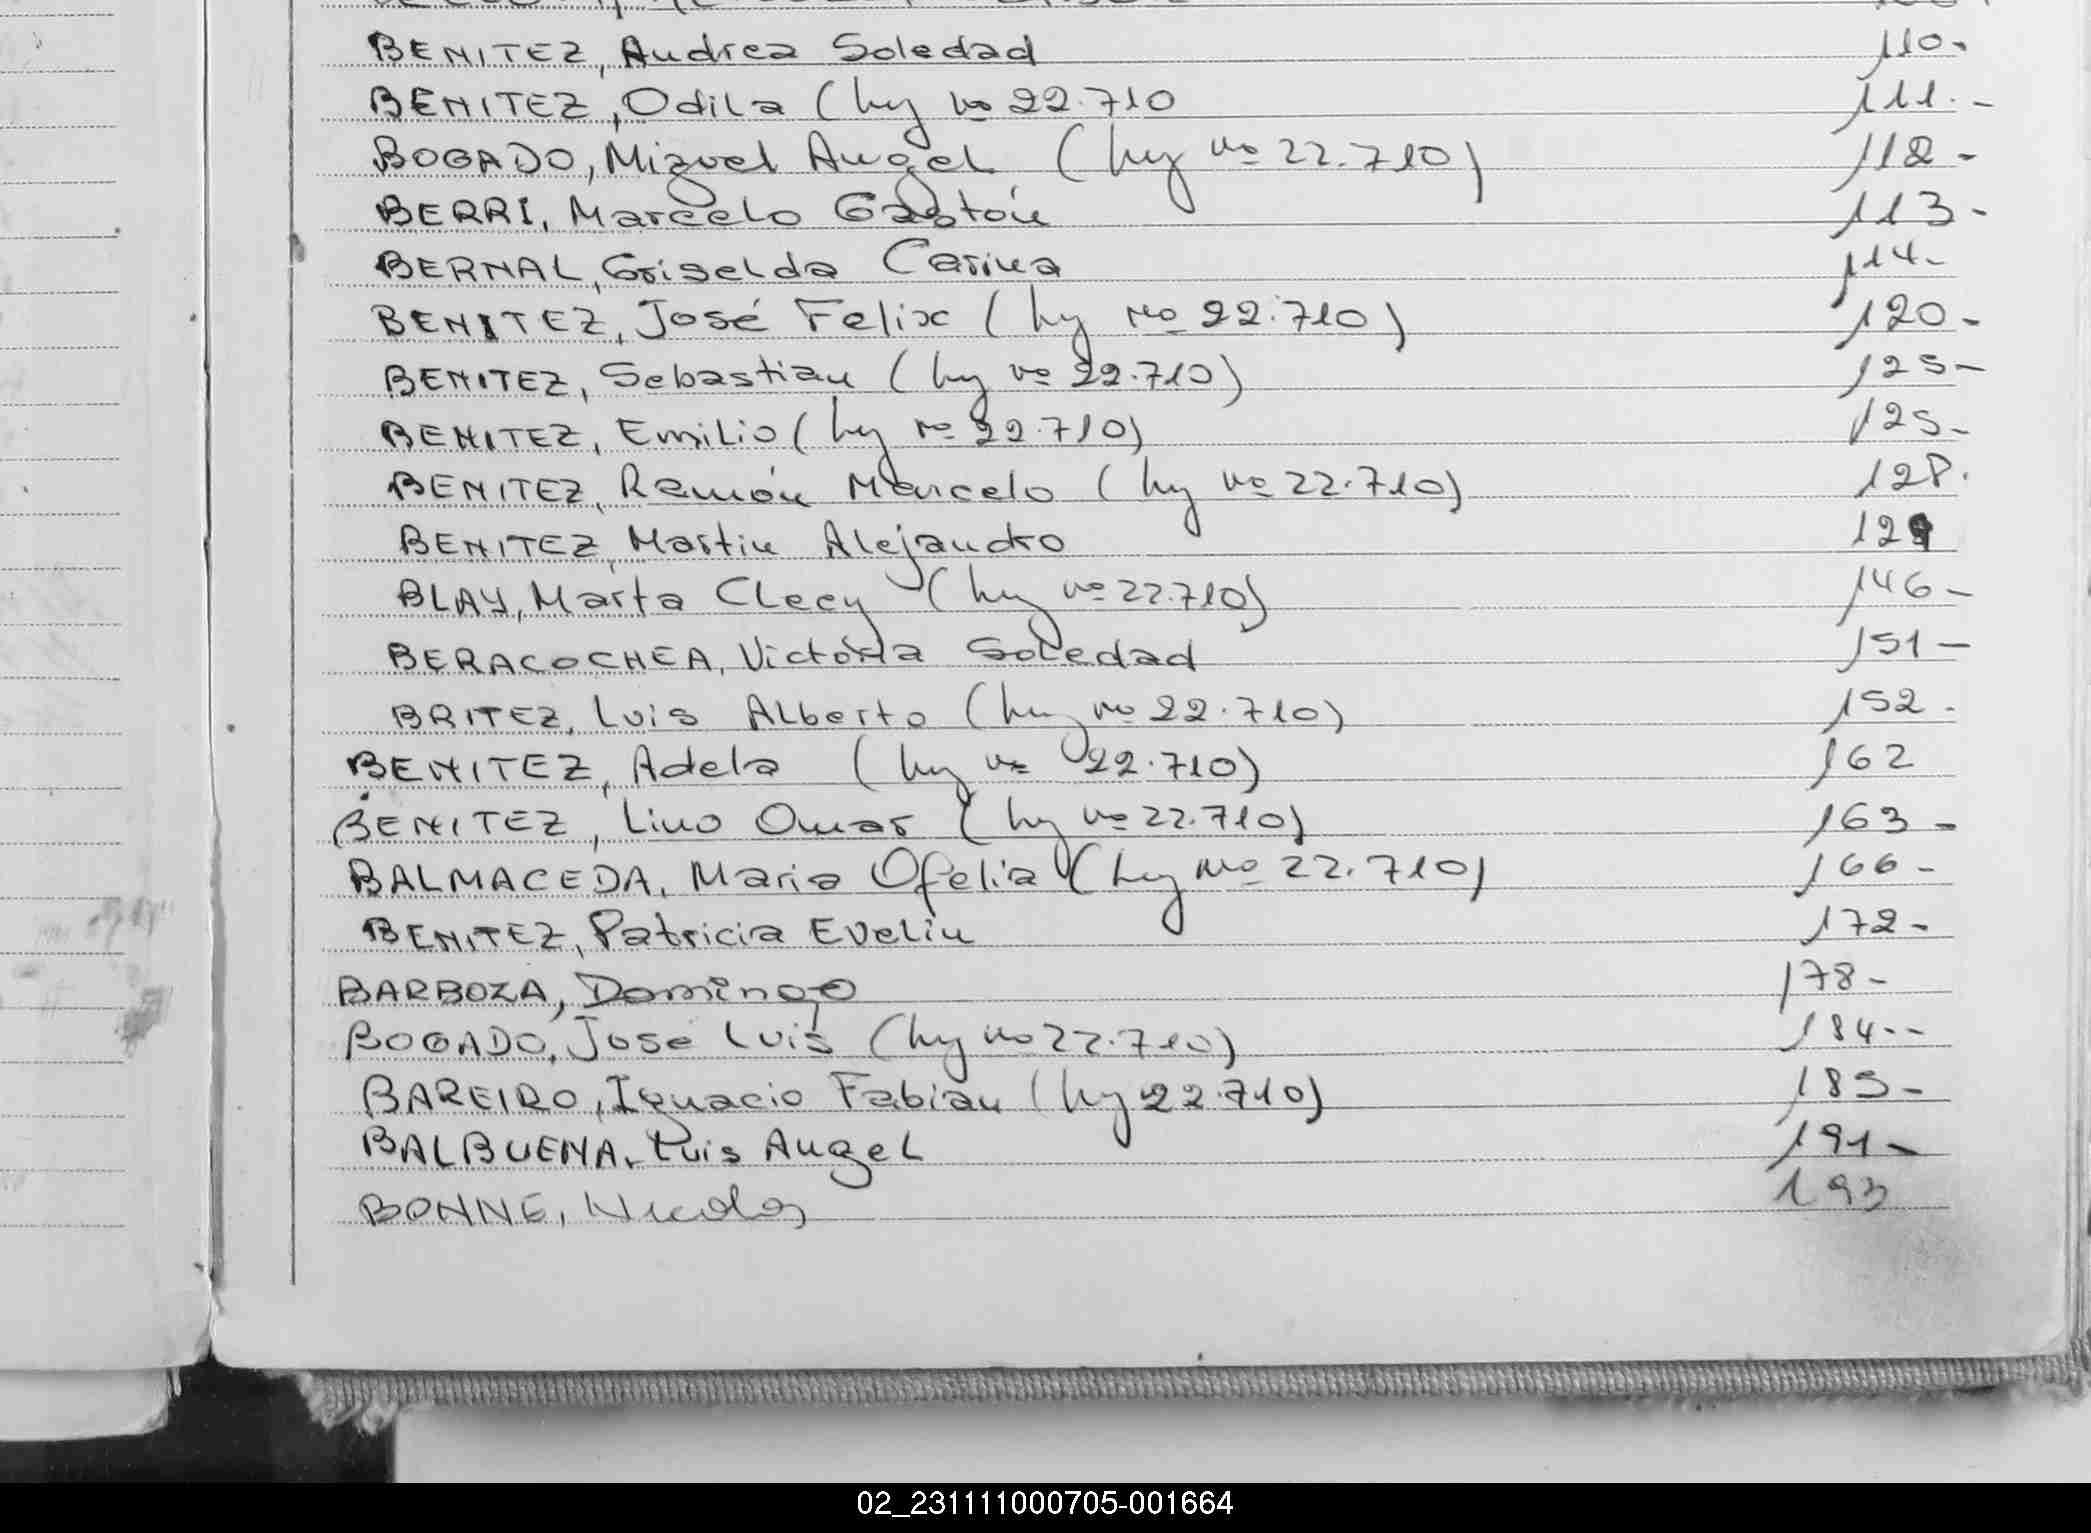 BENITEZ, Andrea Soledad 110-
BENITEZ, Odila (ley no 22.710 111.-
BOGADO, Miguel Angel (ley no 22.710) 112-
BERRI, Marcelo Gastón 113-
BERNAL, Griselda Carina 114-
BENITEZ, José Felix (ly No 22.710) 120-
BENITEZ, Sebastian (ley no 22.710) 125-
BENITEZ, Emilio (ley no 22.710) 125-
BENITEZ, Ramón Marcelo (ley no 22.710) 128.
BENITEZ, Martin Alejandro 129
BLAY, Marta Clecy (ley no 22.710) 146-
BERACOCHEA, Victoria Soledad 151-
BRITEZ, Luis Alberto (ley no 22.710) 152.
BENITEZ, Adela (ley no 22.710) 162
BENITEZ, Lino Omar (ley no 22.710) 163-
BALMACEDA, Maria Ofelia (ley No 22.710) 166-
BENITEZ, Patricia Evelin 172-
BARBOZA, Domingo 178-
BOGADO, José Luis (ley no 22.710) 184--
BAREIRO, Ignacio Fabian (ley 22.710) 185-
BALBUENA, Luis Angel 191-
BONNE, Nicolas 193
02_231111000705-001664